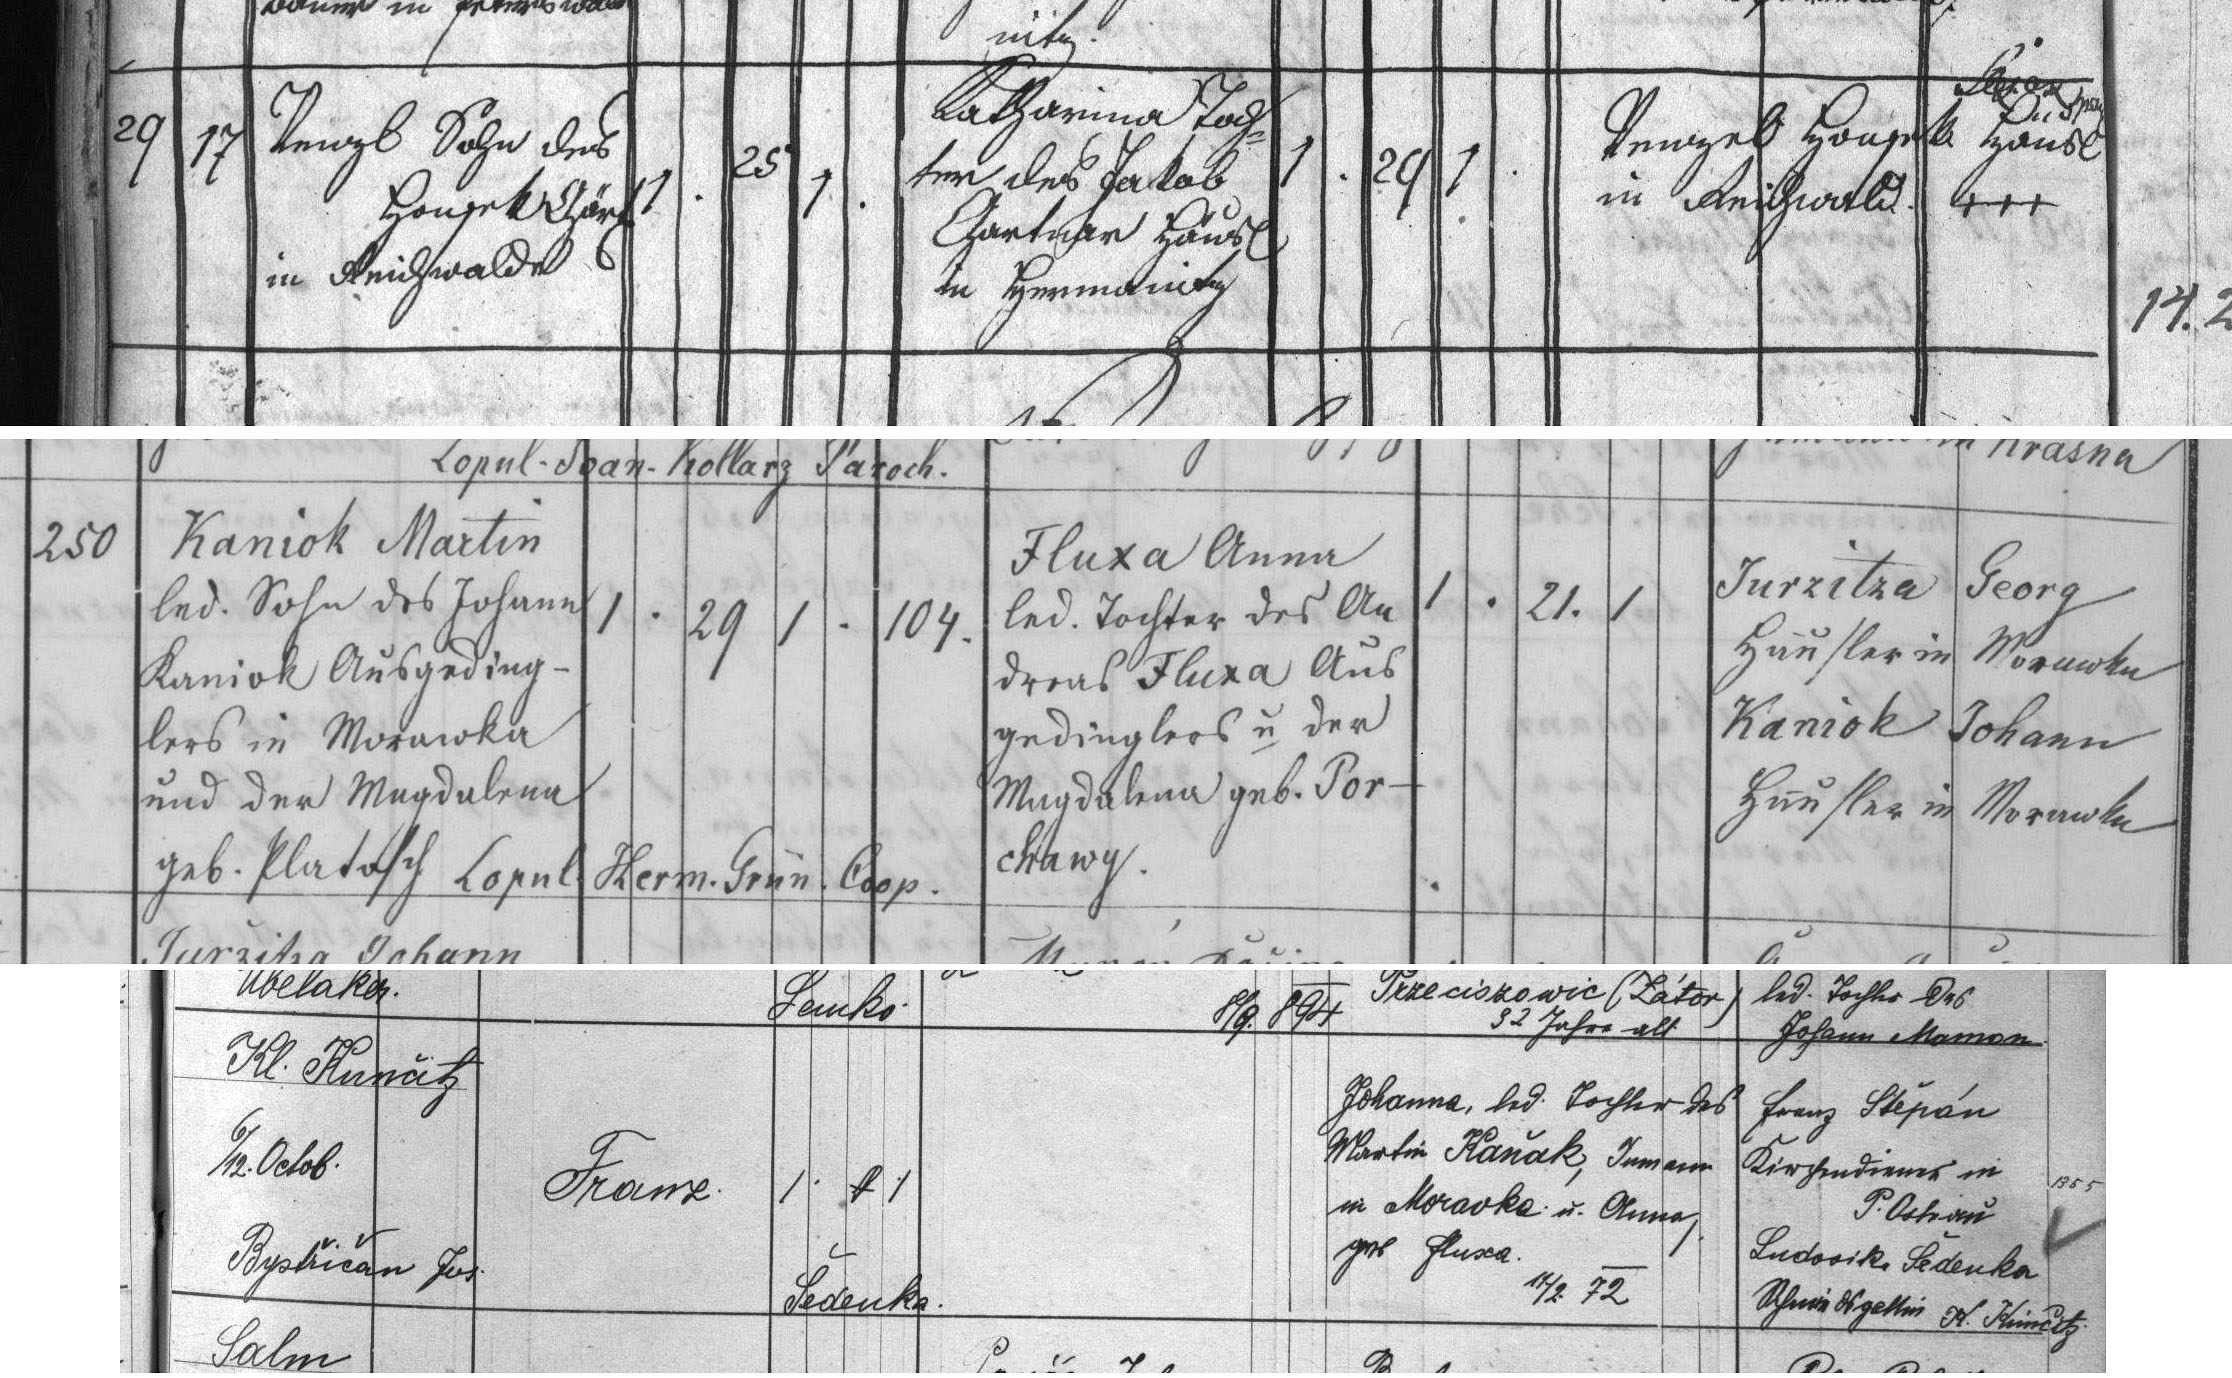 nitz.
29 17 Wenzl Sohn des
Honzek Gärt
in Reichwalde
1 . 25 1 .
Katharina Toch=
ter des Jakob
Gartner Häusl
in Hermanitz
1 . 29 1 .
Wenzel Honzek Häusl
in Reichwald. +++
14. 2
Copul. Joan. Kollarz Paroch.
in Krasna
250
Kaniok Martin
led. Sohn des Johann
Kaniok Ausgeding-
lers in Morawka
und der Magdalena
geb. Platosch Copul. Herm. Grün. Coop.
1 . 29 1 . 104.
Fluxa Anna
led. Tochter des An
dreas Fluxa Aus
gedinglers u der
Magdalena geb. Por-
chawy.
1 . 21. 1
Jurzitza Georg
Häusler in Morawka
Kaniok Johann
Häusler in Morawka
Jurzitza Johann
Ubelaker.
Semko.
8/9. 894
Przeciszowic (Zátor)
32 Jahre alt
led. Tochter des
Johann Maman.
Kl. Kunčitz
6/12. Octob.
Bystřičan Jos.
Franz.
1 . 1
Šedenka.
Johanna, led. Tochter des
Martin Kaňak, Inmann
in Moravka u. Anna,
geb Fluxa.
17/2. 72
Franz Štěpán
Kirchendiener in
P. Ostrau
Ludovika Šedenka
Schmidsgattin Kl. Kunčitz.
1955
Salm